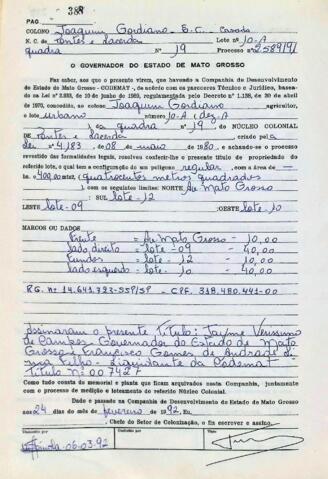 388
PAG
COLONO Joaquim Gordiano B.C. Casado
N. C. de Pontes e Lacerda Lote nº 10-A
quadra Nº 19 Processo nº 2589/91
O GOVERNADOR DO ESTADO DE MATO GROSSO
Faz saber, aos que o presente virem, que havendo a Companhia de Desenvolvimento
do Estado de Mato Grosso - CODEMAT -, de acordo com os pareceres Técnico e Jurídico, basea-
do na Lei nº 2.933, de 10 de junho de 1969, regulamentada pelo Decreto nº 1.138, de 20 de abril
de 1970, concedido, ao colono Joaquim Gordiano agricultor,
o lote urbano nº 10-A (dez-A)
da quadra nº 19 do NÚCLEO COLONIAL
de Pontes e Lacerda criado pela
Lei nº 4.183, de 08 de maio de 1980, e achando-se o processo
revestido das formalidades legais, resolveu conferir-lhe o presente título de propriedade do
referido lote, o qual tem a configuração de um polígono regular, com a área de
400,00 m2 (quatrocentos metros quadrados)
, com os seguintes limites: NORTE Av Mato Grosso
SUL lote-12
LESTE lote-09 OESTE lote-10
MARCOS OU DADOS
Frente - Av Mato Grosso - 10,00
lado direito - lote-09 - 40,00
Fundos - lote-12 - 10,00
lado esquerdo - lote-10 - 40,00
RG. nº 14.641.723-SSP/SP - CPF. 318.480.441-00
Assinaram o presente Título: Jayme Verissimo
de Campos - Governador do Estado de Mato
Grosso, Francisco Gomes de Andrade Li
ma Filho - Liquidante da Codemat
Título Nº 007427
Como tudo consta do memorial e planta que ficam arquivados nesta Companhia, juntamente
com o processo de medição e loteamento do referido Núcleo Colonial.
Dado e passado na Companhia de Desenvolvimento do Estado de Mato Grosso
aos 24 dias do mês de fevereiro de 1992, Eu,
Chefe do Setor de Colonização, o fiz escrever e assino.
06-03-92